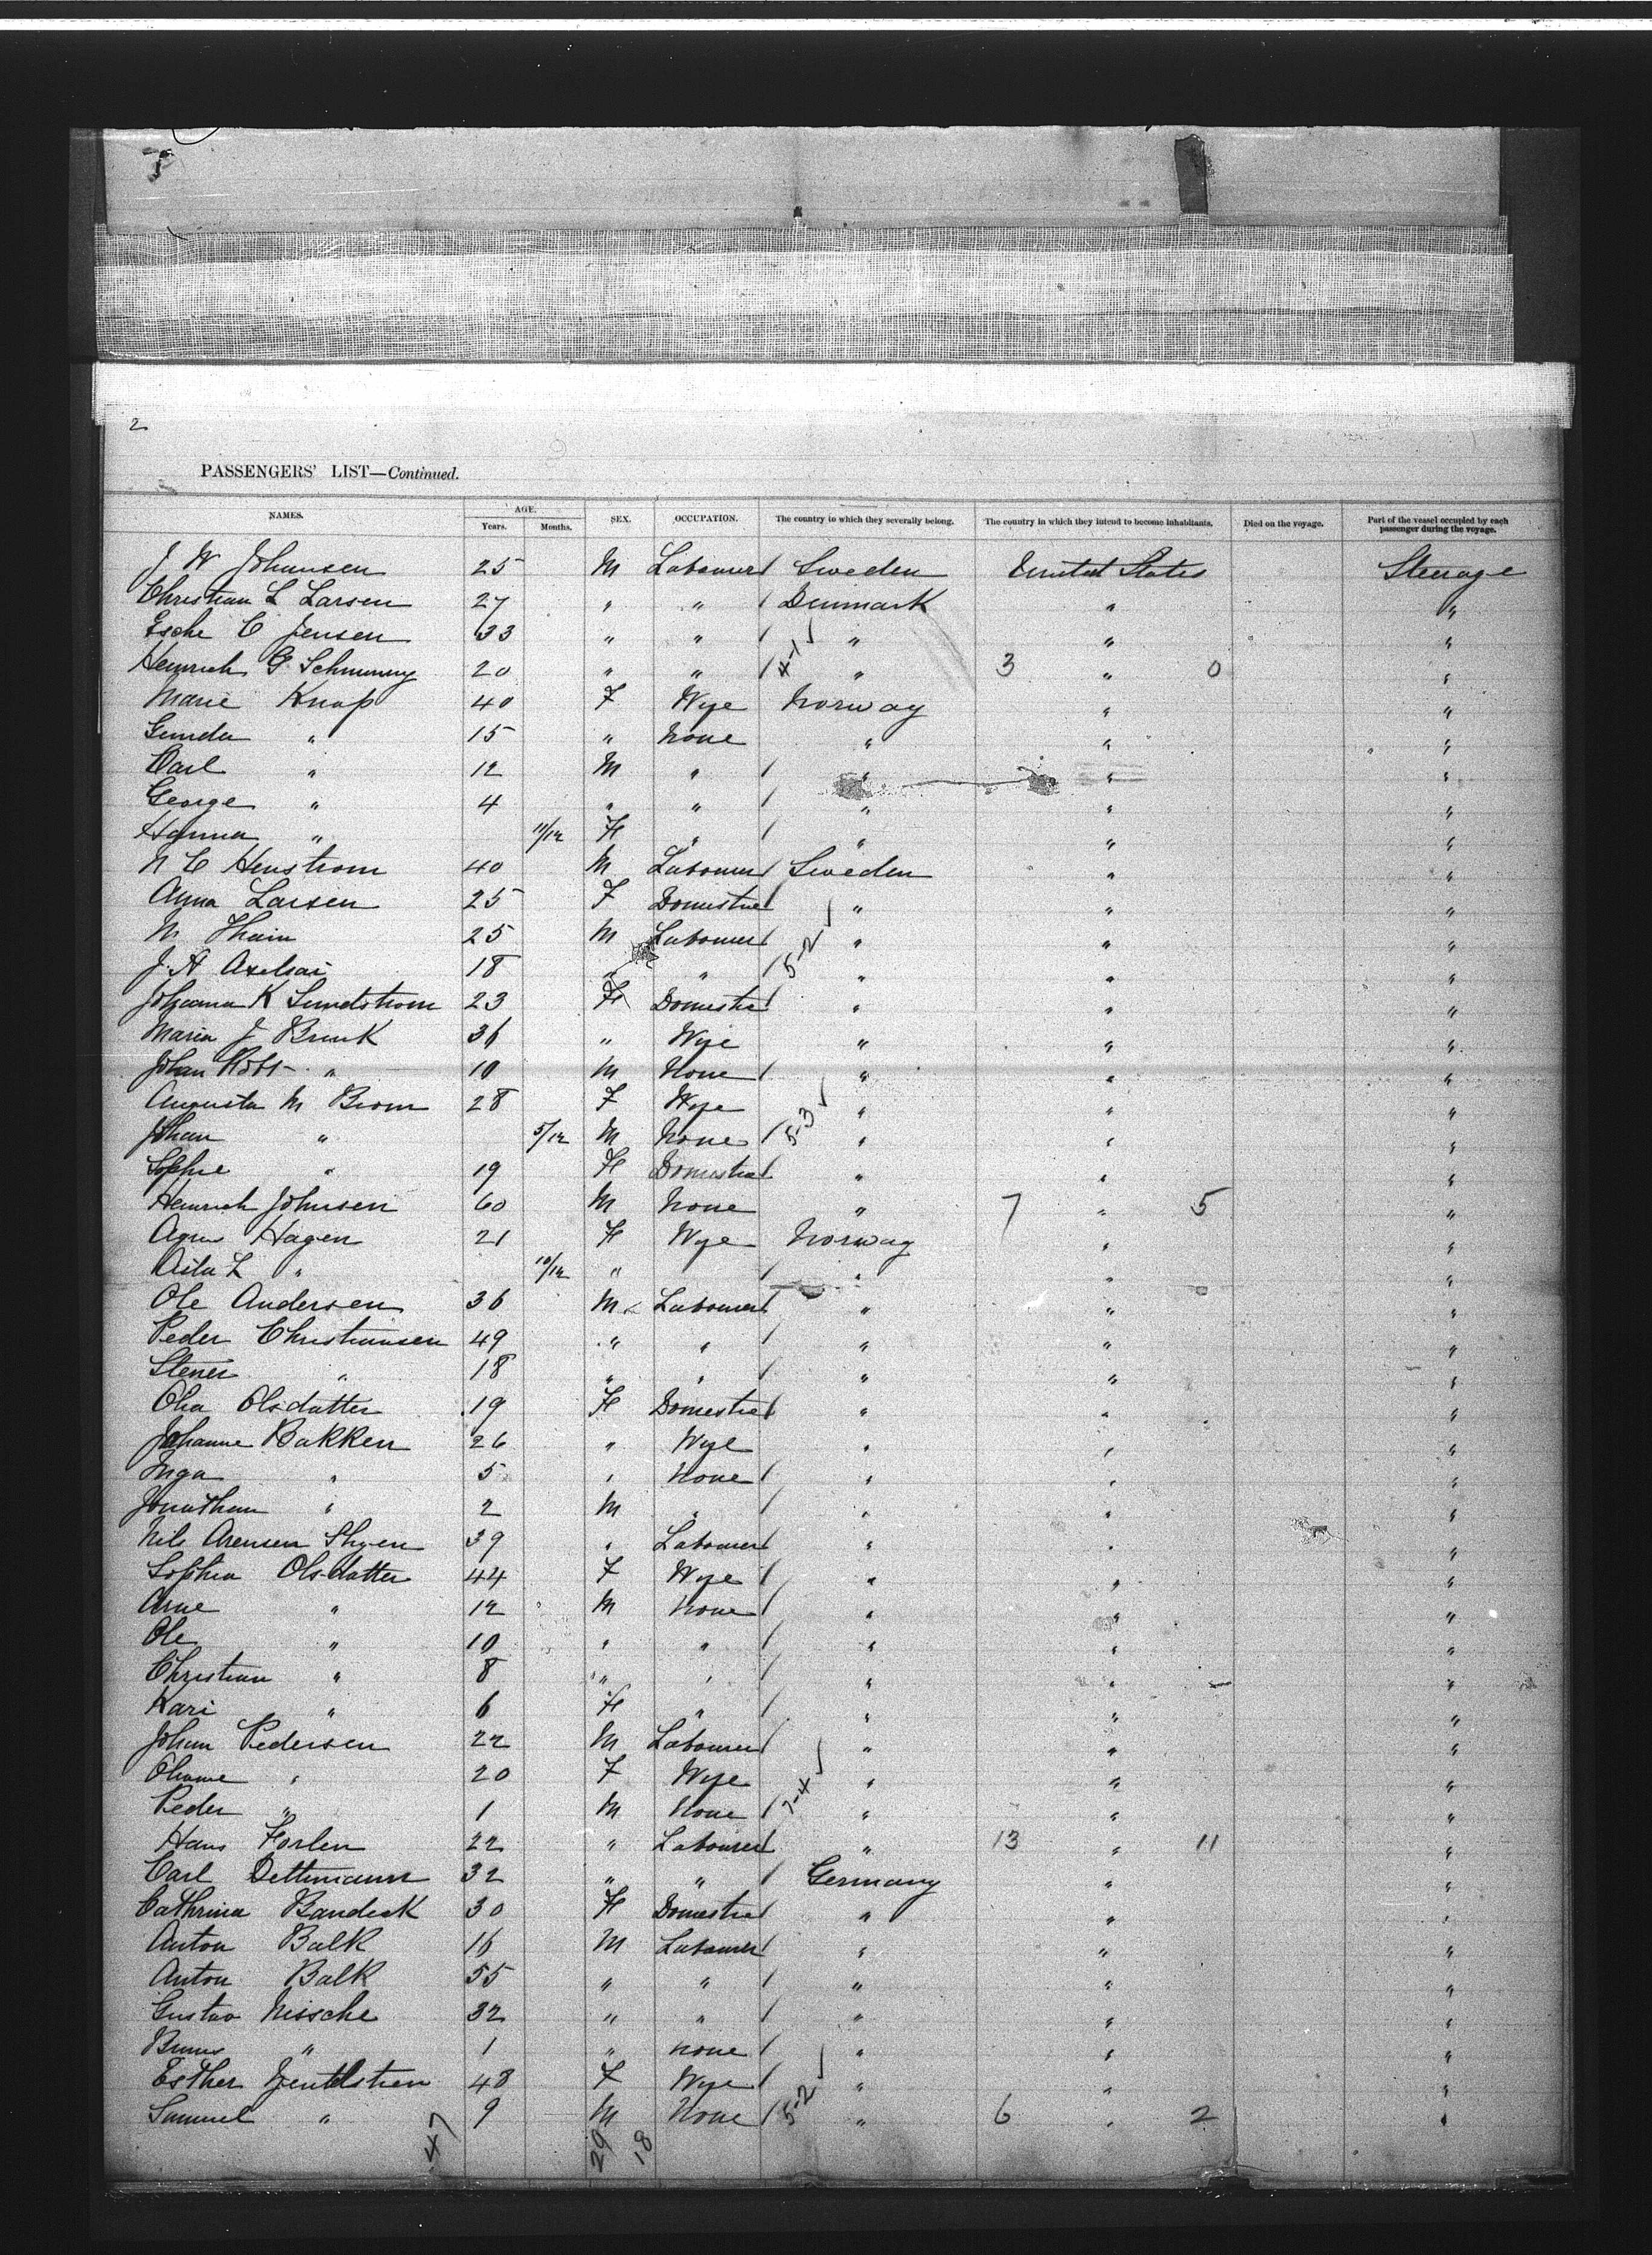 2
PASSENGERS' LIST—Continued.
NAMES. AGE. Years. Months. SEX. OCCUPATION. The country to which they severally belong. The country in which they intend to become inhabitants. Died on the voyage. Part of the vessel occupied by each passenger during the voyage.
J W Johansen 25 M Labourer / Sweden United States Steerage
Christian L Larsen 27 " " / Denmark " "
Esche C Jensen 33 " " / " " "
Heinrich G 20 " " / 4-1 ✓ " 3 " 0 "
Marie Knap 40 F Wife Norway " "
Gunda " 15 " None " " "
Carl " 12 M " / " " "
George " 4 " " / " " "
Hanna " 11/12 F " / " " "
N C Henstrom 40 M Labourer / Sweden " "
Anna Larsen 25 F Domestic / " " "
N. Thein 25 M Labourer / 5-2 ✓ " " "
J. A 18 " " / " " "
Johanna K Lundstrom 23 F Domestic / " " "
Maria J Brunk 36 " Wife " " "
Johan " 10 M None / " " "
Augusta M Brom 28 F Wife " " "
Johan " 5/12 M None / 5-3 ✓ " " "
Sophie " 19 F Domestic / " " "
Heinrich Johnsen 60 M None " 7 " 5 "
Agnes Hagen 21 F Wife Norway " "
L " 10/12 " / " " "
Ole Andersen 36 M Labourer / " " "
Peder Christiansen 49 " " / " " "
Stener " 18 " " / " " "
Olea Olsdatter 19 F Domestic / " " "
Johanne Bakken 26 " Wife " " "
Inga " 5 " None / " " "
Jonathan " 2 M " / " " "
Nils Arensen 39 " Labourer / " " "
Sophia Olsdatter 44 F Wife / " " "
Arne " 12 M None / " " "
Ole " 10 " " / " " "
Christian " 8 " " / " " "
Kari " 6 F " / " " "
Johan Pedersen 22 M Labourer / " " "
" 20 F Wife " " "
Peder " 1 M None / 7-4 ✓ " " "
Hans 22 " Labourer / " 13 " 11 "
Carl Dettmann 32 " " / Germany " "
Cathrina Bandeck 30 F Domestic / " " "
Anton Balk 16 M Labourer / " " "
Anton Balk 55 " " / " " "
Gustav Nissche 32 " " / " " "
Bruno " 1 " None / " " "
Esther 48 F Wife / " " "
Samuel " 9 M None / 5-2 ✓ " 6 " 2 "
47 29 18